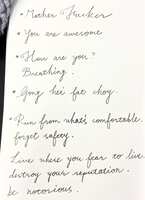 • Mother Fhucker
• You are awesome
• "How are you"
Breathing.
• Gong hei fat choy.
• Run from what's comfortable.
forget safety.
Live where you fear to live.
destroy your reputation.
be notorious.